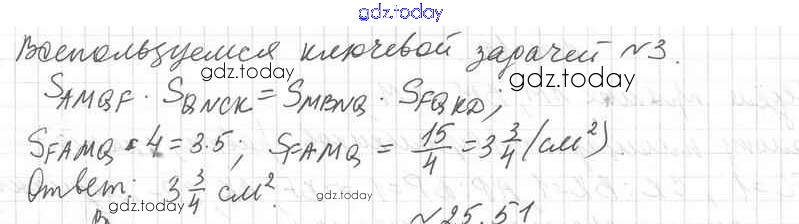 gdz.today
Воспользуемся ключевой задачей №3.
gdz.today gdz.today
S_AMQF · S_QNCK = S_MBNQ · S_FQKD;
S_FAMQ · 4 = 3·5; S_FAMQ = 15/4 = 3 3/4 (см²).
gdz.today
Ответ: 3 3/4 см².
gdz.today gdz.today
№25.51